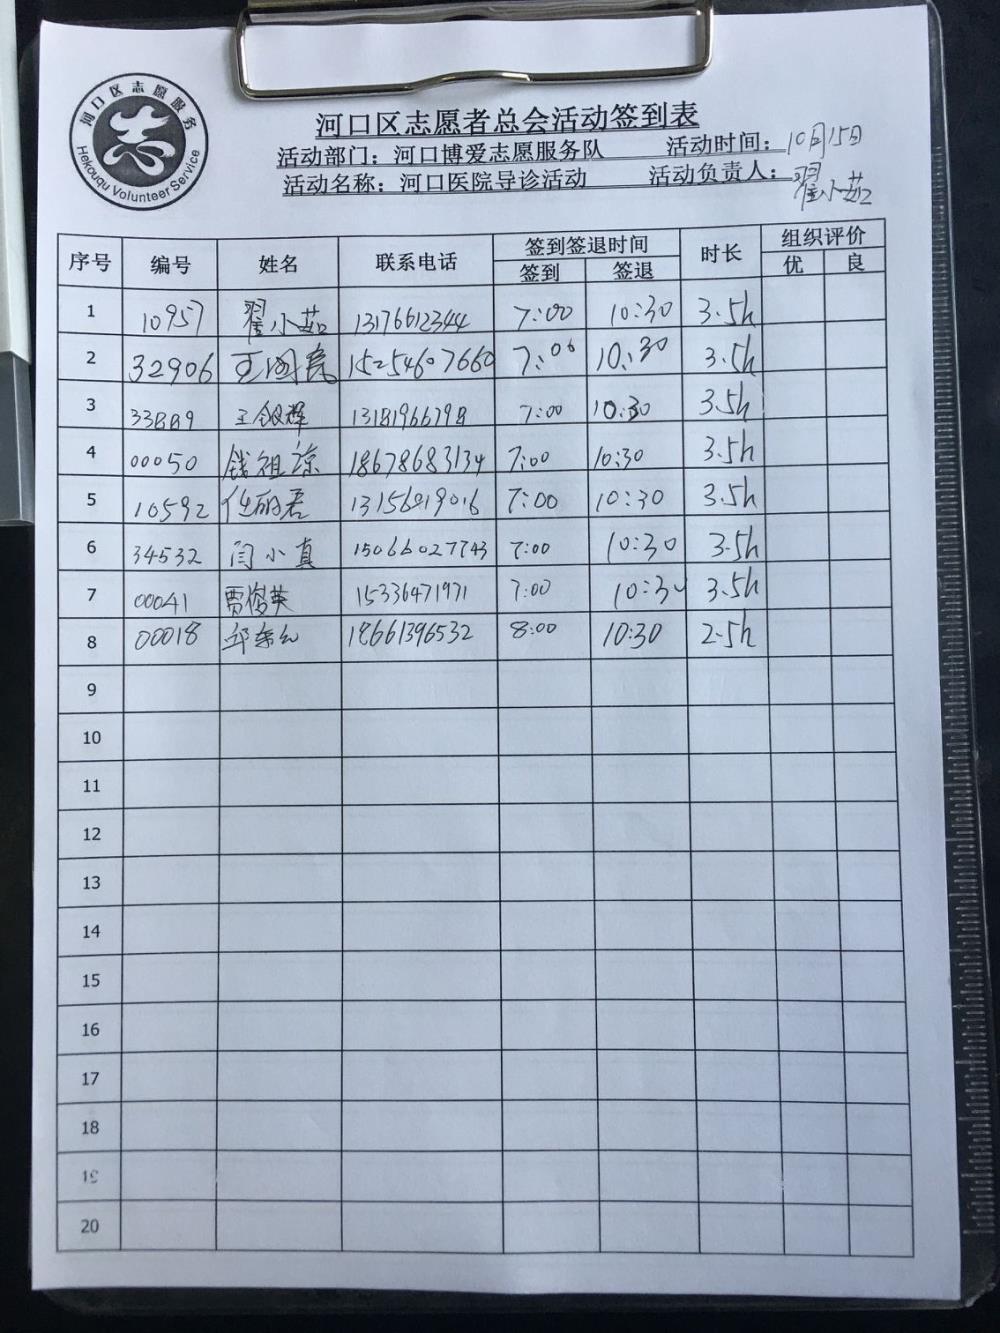 河口区志愿服务
Hekouqu Volunteer Service
河口区志愿者总会活动签到表
活动部门：河口博爱志愿服务队 活动时间：10月15日
活动名称：河口医院导诊活动 活动负责人：翟小茹
序号 编号 姓名 联系电话 签到签退时间 时长 组织评价
签到 签退 优 良
1 10957 翟小茹 13176612344 7:00 10:30 3.5h
2 32906 王国亮 15254607660 7:00 10:30 3.5h
3 33889 王银辉 13181966798 7:00 10:30 3.5h
4 00050 钱祖琼 18678683134 7:00 10:30 3.5h
5 10592 任丽君 13156419016 7:00 10:30 3.5h
6 34532 闫小真 15066027743 7:00 10:30 3.5h
7 00041 贾俊英 15336471971 7:00 10:30 3.5h
8 00018 邱 18661396532 8:00 10:30 2.5h
9
10
11
12
13
14
15
16
17
18
19
20